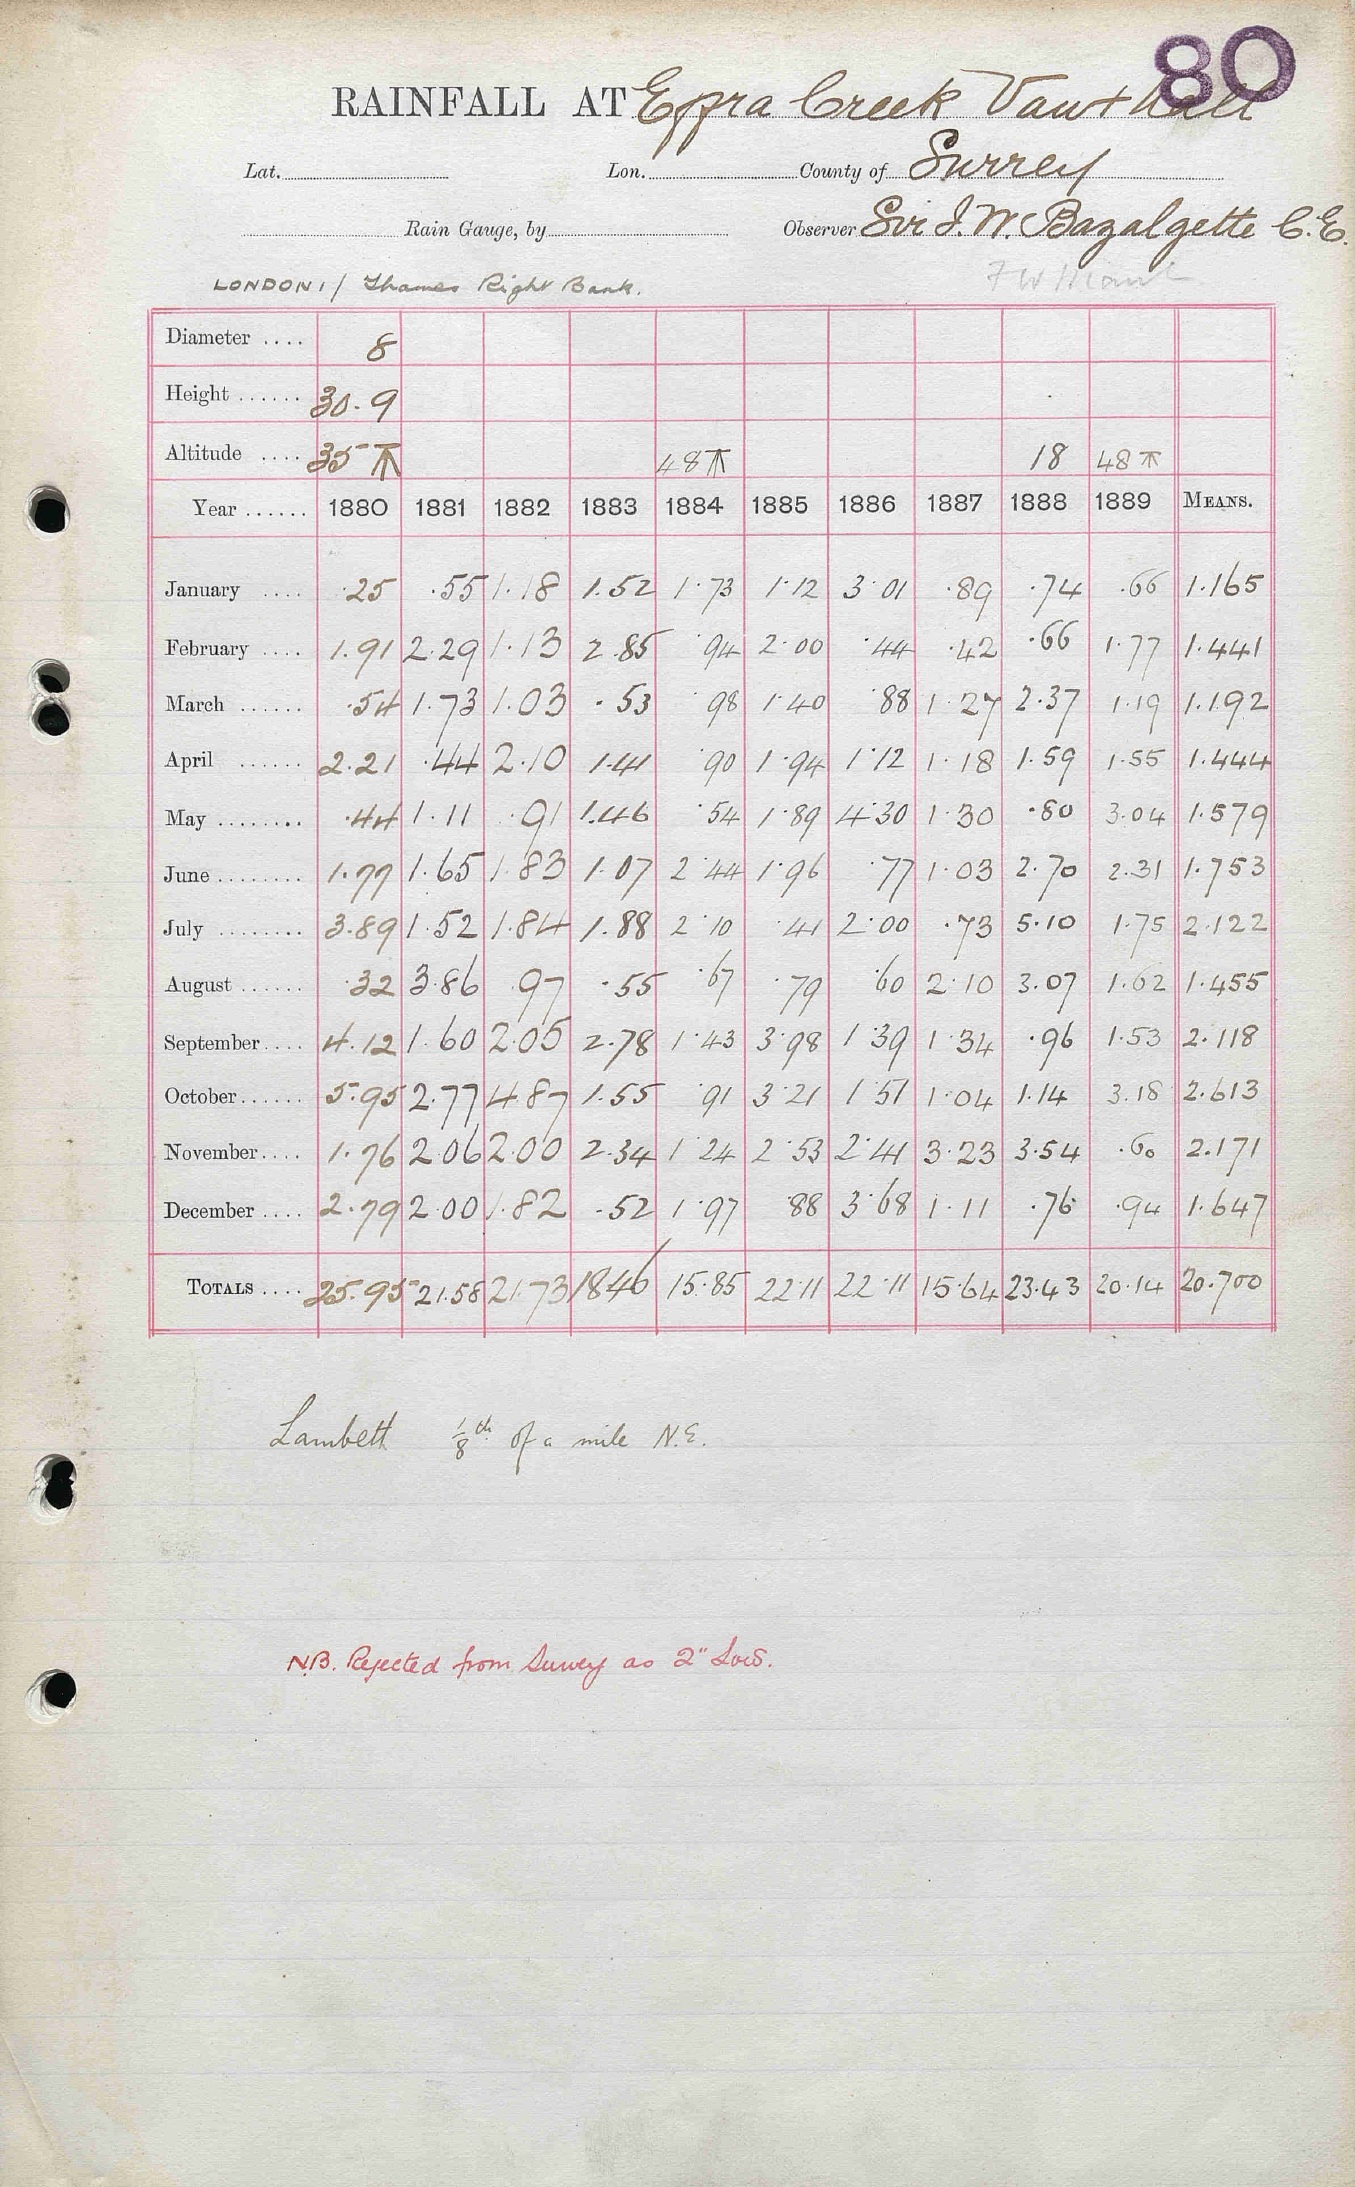 80
RAINFALL AT Effra Creek Vauxhall
Lat. Lon. County of Surrey
Rain Gauge, by Observer Sir J. W. Bazalgette C.E.
LONDON, / Thames Right Bank.
Diameter .... 8
Height ...... 30.9
Altitude .... 35 48 18 48
Year ...... 1880 1881 1882 1883 1884 1885 1886 1887 1888 1889 MEANS.
January .... .25 .55 1.18 1.52 1.73 1.12 3.01 .89 .74 .66 1.165
February .... 1.91 2.29 1.13 2.85 .94 2.00 .44 .42 .66 1.77 1.441
March ...... .54 1.73 1.03 .53 .98 1.40 .88 1.27 2.37 1.19 1.192
April ...... 2.21 .44 2.10 1.41 .90 1.94 1.12 1.18 1.59 1.55 1.444
May ........ .44 1.11 .91 1.46 .54 1.89 4.30 1.30 .80 3.04 1.579
June ........ 1.77 1.65 1.83 1.07 2.44 1.96 .77 1.03 2.70 2.31 1.753
July ........ 3.89 1.52 1.84 1.88 2.10 .41 2.00 .73 5.10 1.75 2.122
August ...... .32 3.86 .97 .55 .67 .79 .60 2.10 3.07 1.62 1.455
September .... 4.12 1.60 2.05 2.78 1.43 3.98 1.39 1.34 .96 1.53 2.118
October ...... 5.95 2.77 4.87 1.55 .91 3.21 1.51 1.04 1.14 3.18 2.613
November .... 1.76 2.06 2.00 2.34 1.24 2.53 2.41 3.23 3.54 .60 2.171
December .... 2.79 2.00 1.82 .52 1.97 .88 3.68 1.11 .76 .94 1.647
TOTALS .... 25.95 21.58 21.73 18.46 15.85 22.11 22.11 15.64 23.43 20.14 20.700
Lambeth 1/8th of a mile N.E.
N.B. Rejected from Survey as 2" Low.